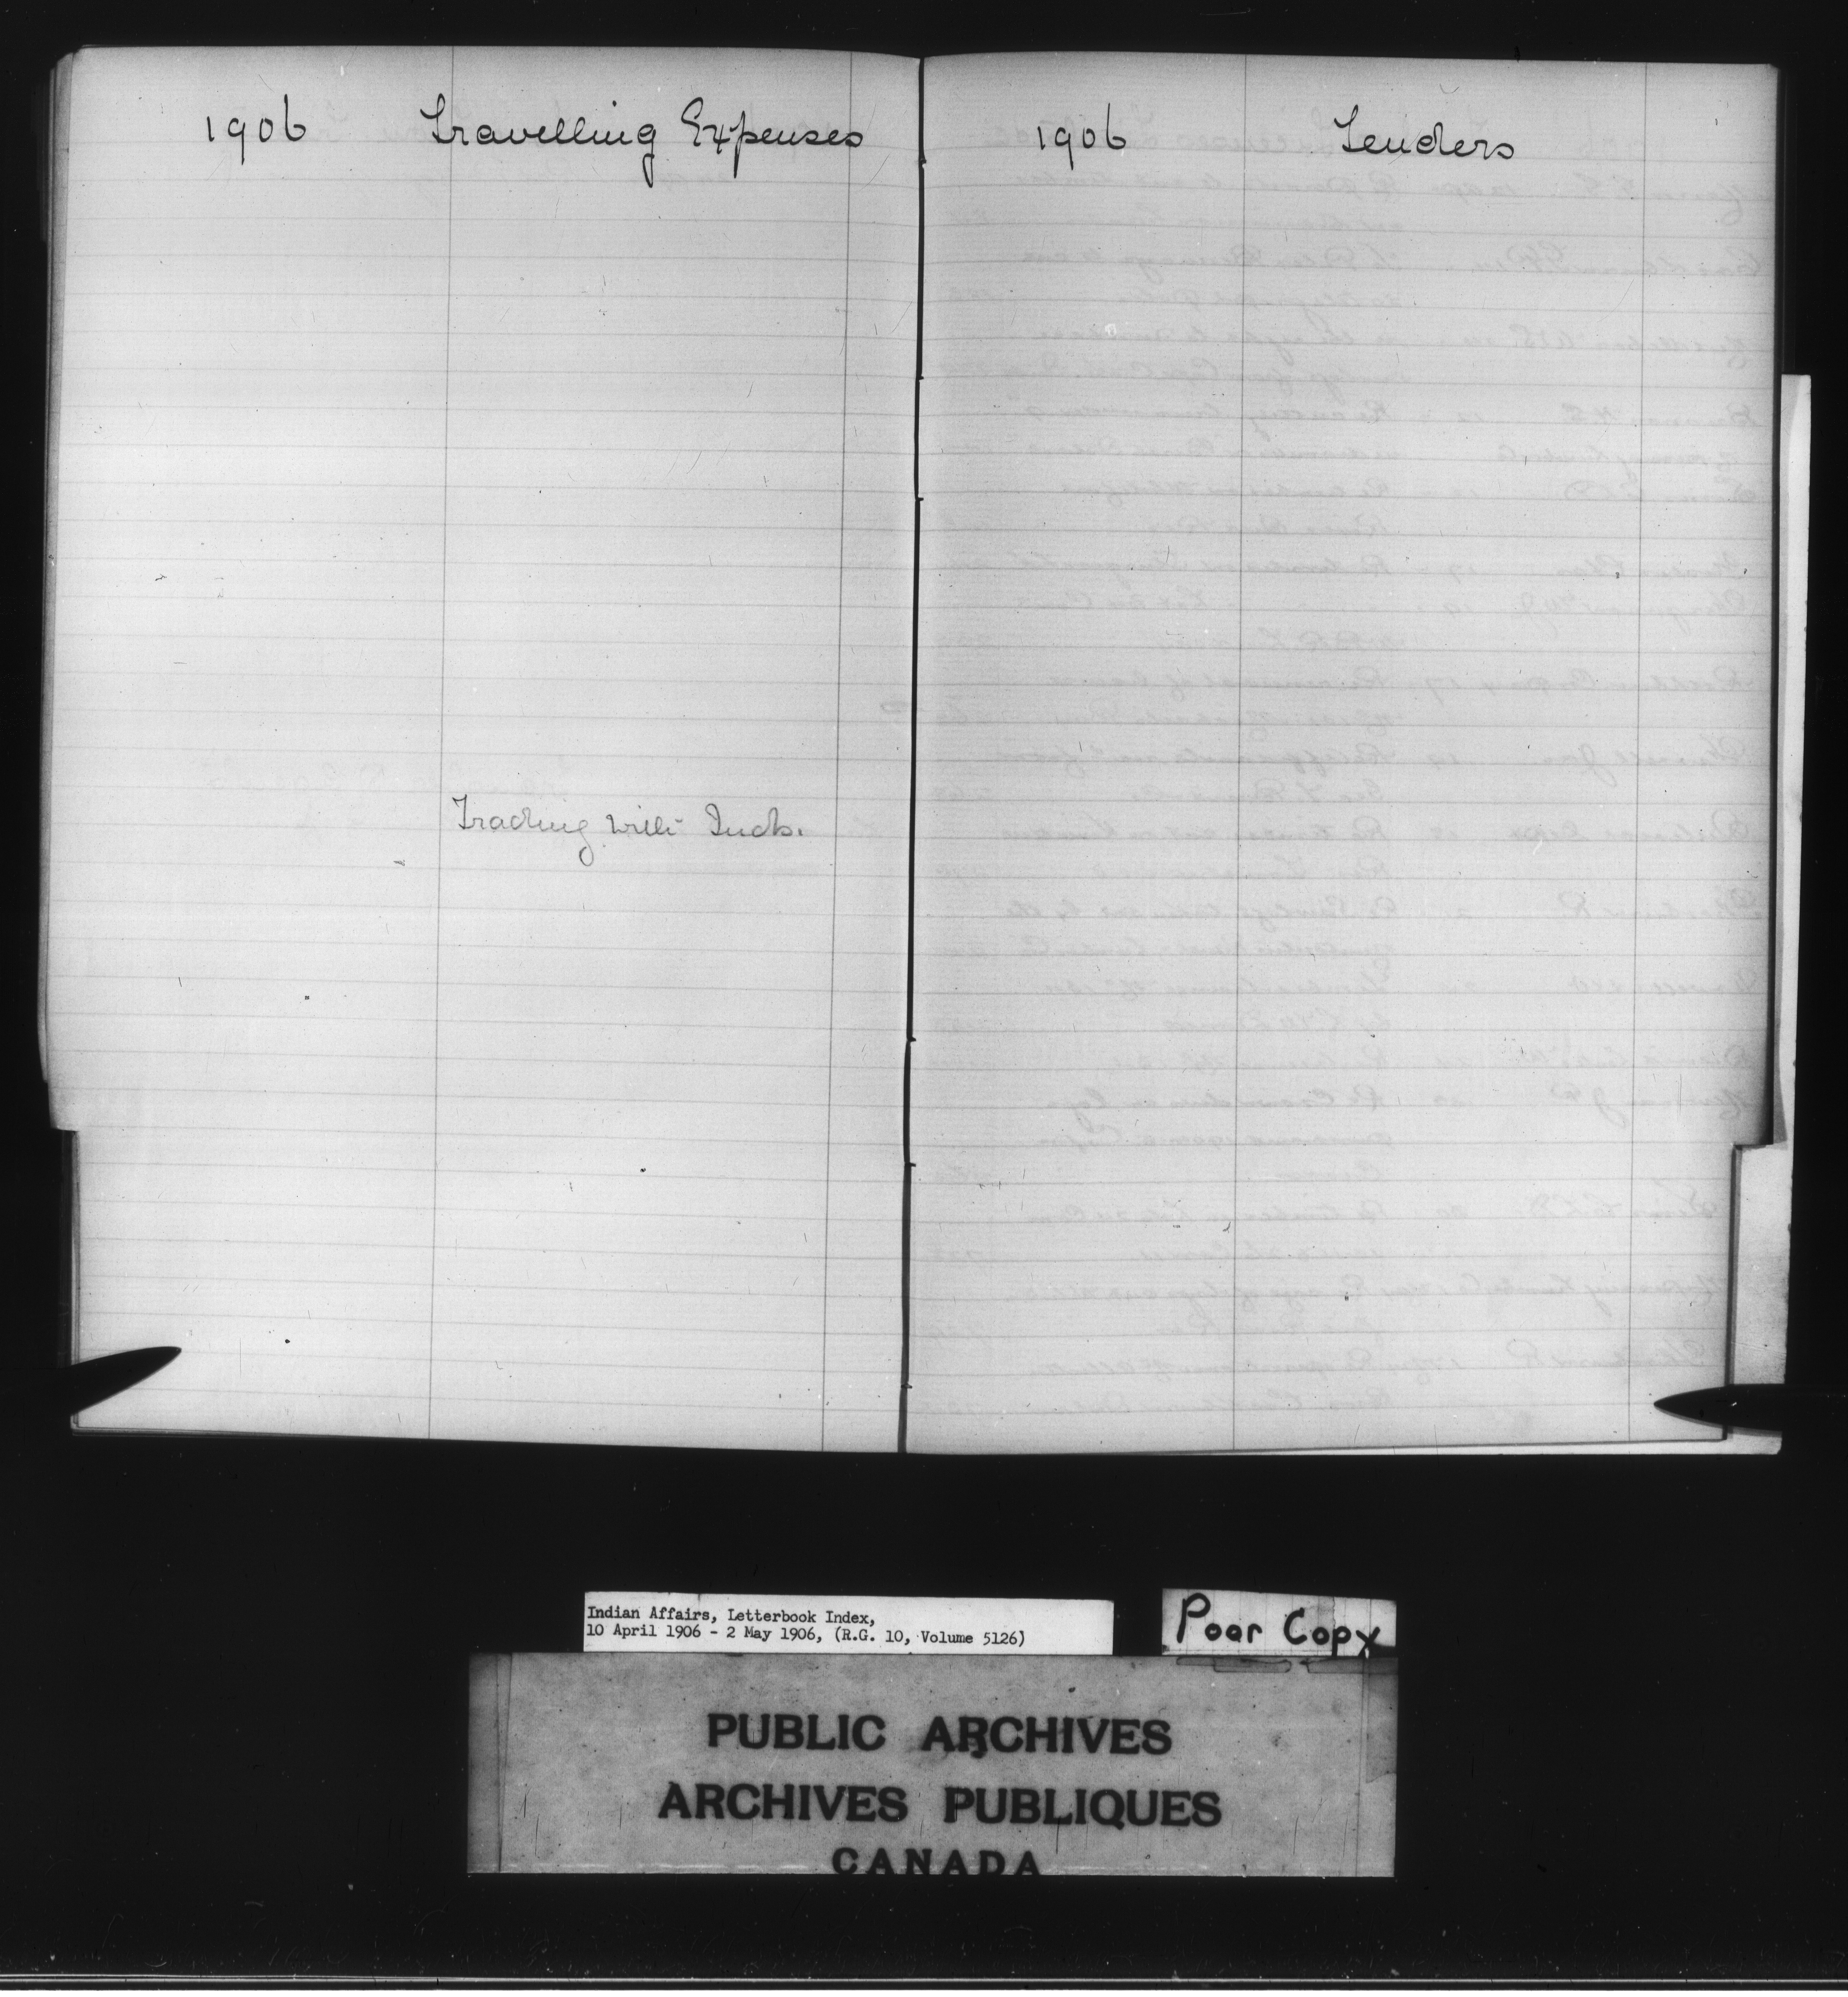 1906 Travelling Expenses
Trading with Inds.
1906 Tenders
Indian Affairs, Letterbook Index,
10 April 1906 - 2 May 1906, (R.G. 10, Volume 5126)
Poor Copy
PUBLIC ARCHIVES
ARCHIVES PUBLIQUES
CANADA